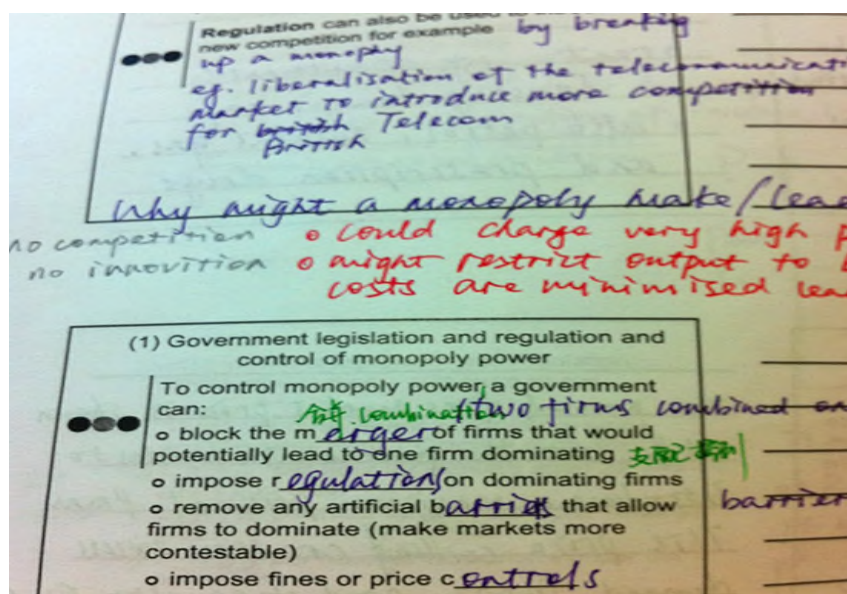 Regulation can also be used to
new competition for example by breaking
up a monoply
eg. liberalisation of the telecommunicati
market to introduce more competition
for british Telecom
British
Why might a monopoly make/lea
no competition o could charge very high p
no innovition o might restrict output to
costs are minimised lea
(1) Government legislation and regulation and
control of monopoly power
To control monopoly power, a government
can: 合并 combination/two firms combined
o block the merger of firms that would
potentially lead to one firm dominating 支配
o impose regulation on dominating firms
o remove any artificial barries that allow barrier
firms to dominate (make markets more
contestable)
o impose fines or price controls